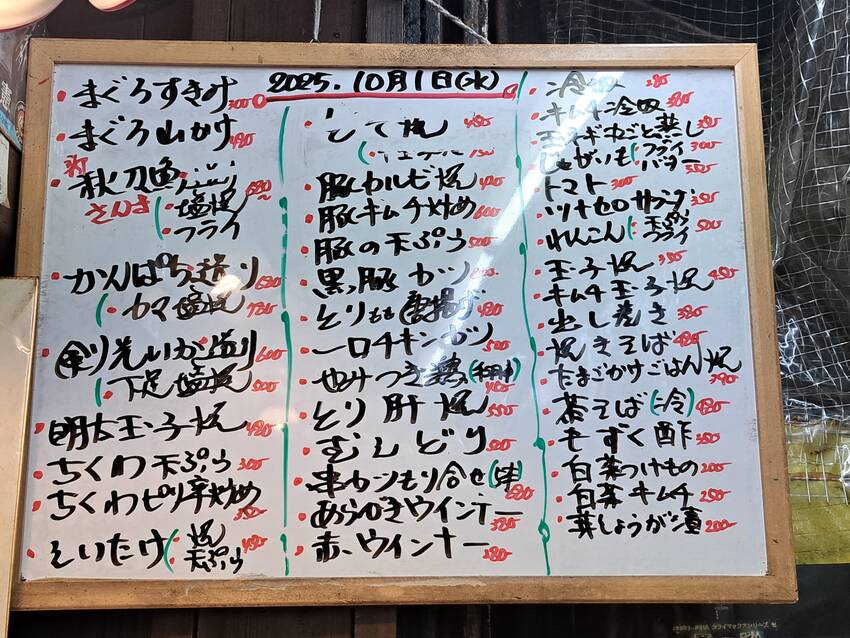 2025.10月1日(水)
まぐろすきみ 300
まぐろ山かけ 480
秋刀魚
さんま
塩焼
フライ
かんぱち造り 680
カマ塩焼 780
いか造り 600
下足塩焼 500
明太玉子焼 480
ちくわ天ぷら 300
ちくわピリ辛炒め 350
しいたけ 焼 480
天ぷら
どて焼 480
豚カルビ焼 480
豚キムチ炒め 600
豚の天ぷら 500
黒豚カツ
とりもも唐揚げ 480
一口チキンカツ 500
やみつき鶏
とり肝焼 550
むしどり 500
串カツもり合せ 680
あらびきウインナー 380
赤ウインナー 380
冷奴 280
キムチ冷奴 380
じゃがいも フライ
バター 350
トマト 300
ツナセロサラダ 350
れんこん 天ぷら
フライ 500
玉子焼 350
キムチ玉子焼 450
出し巻き 380
焼きそば 480
たまごかけごはん焼 390
茶そば(冷) 480
もずく酢 350
白菜つけもの 200
白菜キムチ 250
芽しょうが漬 200